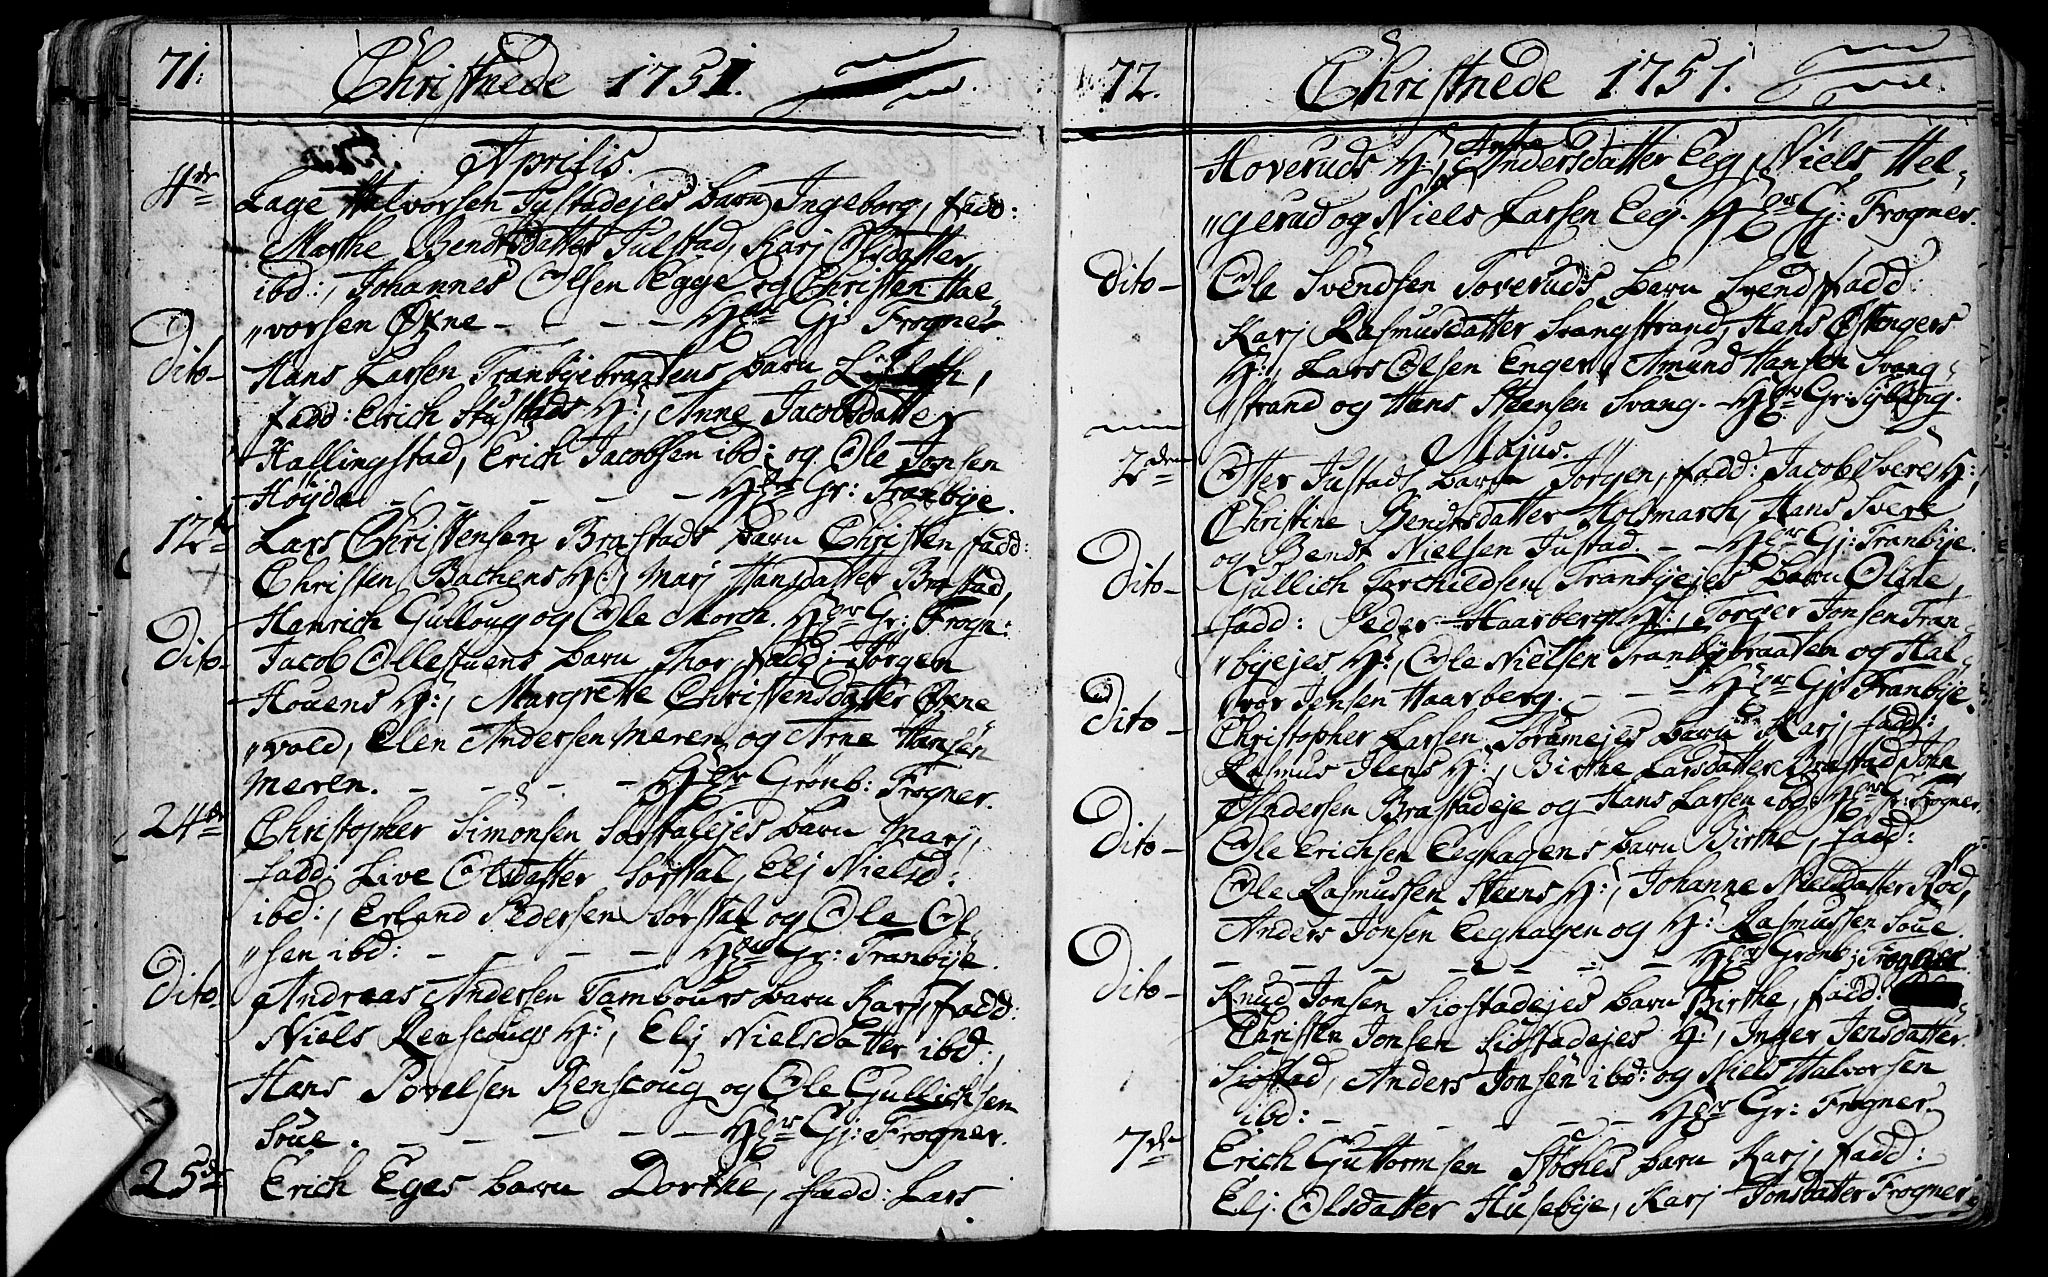 71.
Christnede 1751.
Aprilis.
4de Lage Halvorsen Justadejes barn Ingeborg, fadd:
Marthe Bendtsdatter Julstad, Karj Olsdatter
ibd:, Johannes Olsen Egge og Christen Hal
"vorsen Øxne - - - - Gj: Frogner
Dito - Hans Larsen Tranbyebraatens barn
fadd: Erich Stustads H:, Anne Jacobsdatter
Hallingstad, Erich Jacobsen ibd: og Ole Jonsen
Høyda - - - - - Gr: Tranbye.
12te Lars Christensen Brastads barn Christen fadd:
Christen Bachens H:, Marj Hansdatter Brastad,
Hanrich Gulloug og Ole Morch. Gr: Frogn:
Dito - Jacob Ollestuens barn Thor, fadd: Jørgen
Houens H:, Margrethe Christensdatter Øxne
"vold, Elen Andersen Meren og Arne Hansen
Meren. - - - - Grønb: Frogner.
24de Christopher Simonsen Sørstalejes barn Marj,
fadd: Live Olsdatter Sørstal, Elj Nielsd:
ibd:, Erland Pedersen Sørstal og Ole Ol
"sen ibd: - - - - - Gr: Tranbye.
Dito Andreas Andersen Tambours barn Karj, fadd:
Niels Renscougs H:, Elj Nielsdatter ibd:,
Hans Povelsen Renscoug og Ole Gullichsen
Soue. - - - - - Gj: Frogner.
25de Erich Eges barn Dorthe, fadd: Lars
72.
Christnede 1751.
Hoveruds H:, Anne Andersdatter Eeg, Niels Hel-
"gerud og Niels Larsen Eeg. Gj: Frogner.
Dito - Ole Svendsen Toveruds barn Svend, fadd:
Karj Rasmusdatter Svangstrand, Hans Østengers
H:, Lars Olsen Enger, Amund Hansen Svang-
"strand og Hans Steensen Svang. - Gr: Sylling.
Majus.
2den Otter Justads barn Jørgen, fadd: Jacob Sveres H:,
Christine Bendtsdatter Holsmarch, Hans Svere
og Bendt Nielsen Justad. - - Gj: Tranbye.
Dito - Gullich Torchildsen Tranbyejes barn Oline,
fadd: Peder Haarbergs H:, Torger Jonsen Tran-
"byejes H:, Ole Nielsen Tranbyebraaten og Hal-
"vor Jensen Haarberg. - - - Gj: Tranbye.
Dito - Christopher Larsen Soramejes barn Karj, fadd:
Rasmus Ilens H:, Birthe Larsdatter Brastad, John
Andersen Brastadeje og Hans Larsen ibd: Gr: Frogner.
Dito - Ole Erichsen Eeghagens barn Birthe, fadd:
Ole Rasmussen Steens H:, Johanne Nielsdatter Rød,
Anders Jonsen Eeghagen og H: Rasmussen Soue.
- - - - - - - Grønb: Frogner
Dito - Knud Jonsen Siostadejes barn Birthe, fadd:
Christen Jonsen Siostadejes H:, Inger Jensdatter
Siostad, Anders Jonsen ibd: og Niels Halvorsen
ibd: - - - - - - Gr: Frogner.
7de Erich Guttormsen Støches barn Karj, fadd:
Elj Olsdatter Husebye, Karj Jonsdatter Frogner,